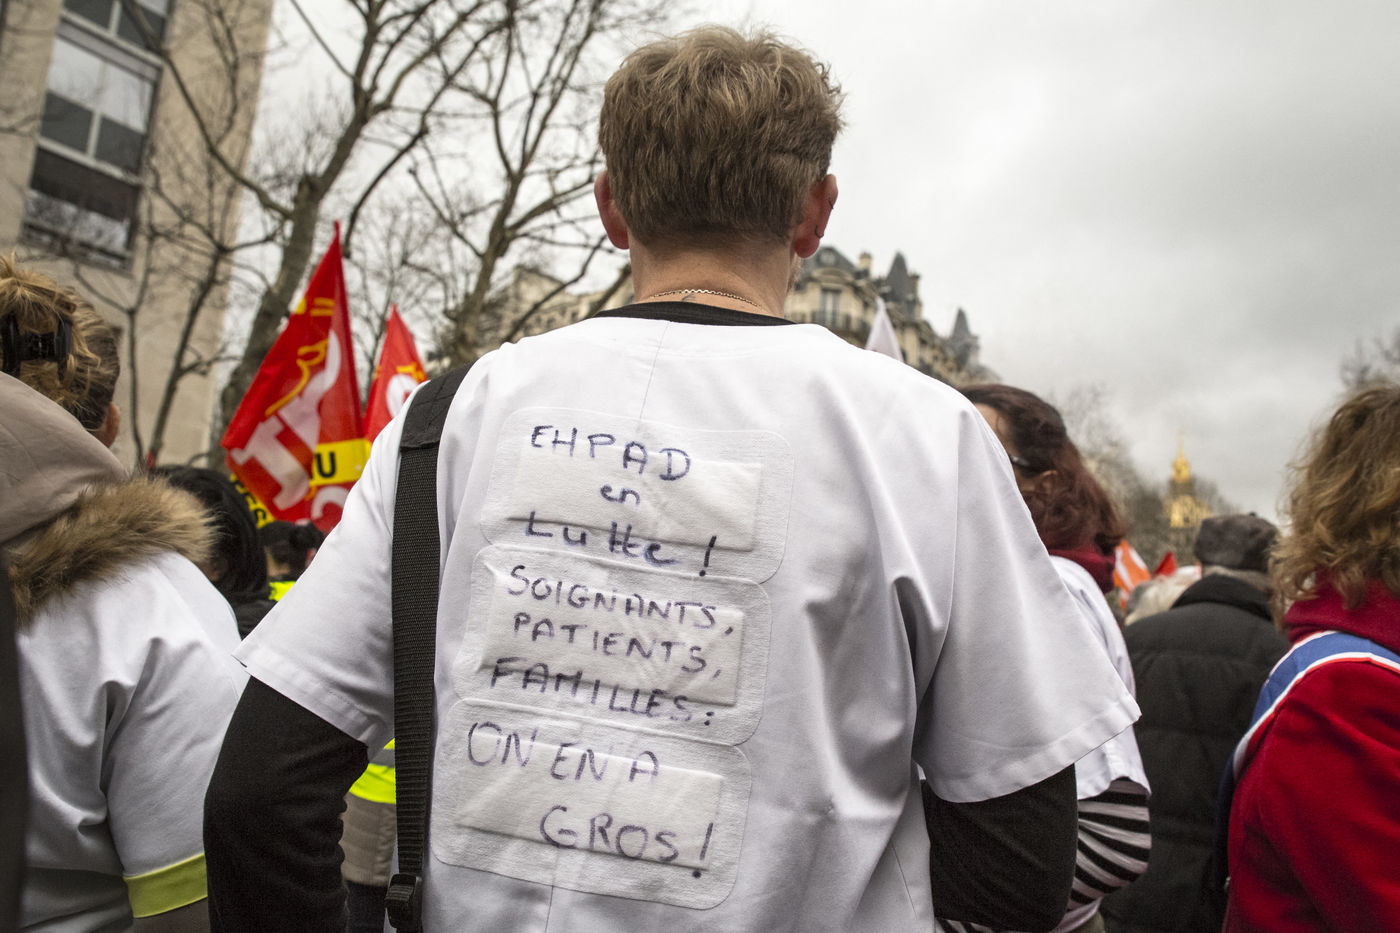 EHPAD
en
Lutte !
SOIGNANTS,
PATIENTS,
FAMILLES:
ON EN A
GROS!